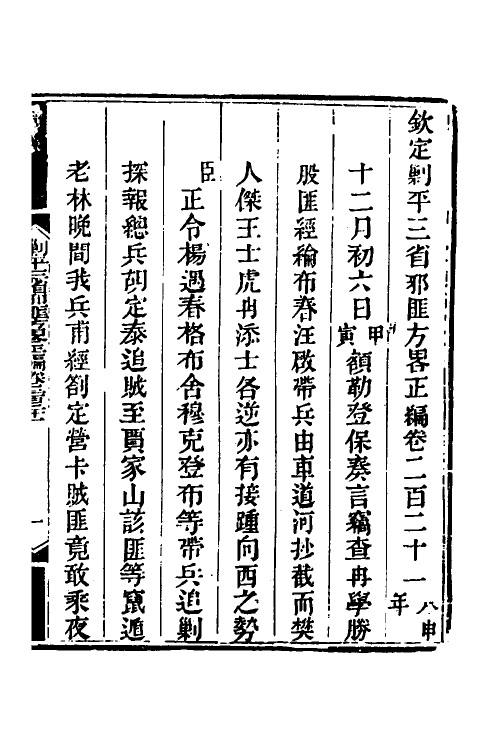 欽定剿平三省邪匪方畧正編卷二百二十一
十二月初六日甲寅額勒登保奏言竊查冉學勝
股匪經綸布春汪啟帶兵由車道河抄截而樊
人傑王士虎冉添士各逆亦有接踵向西之勢
臣正令楊遇春格布舍穆克登布等帶兵追剿
探報總兵胡定泰追賊至賈家山該匪等竄遁
老林晚間我兵甫經劄定營卡賊匪竟敢乘夜